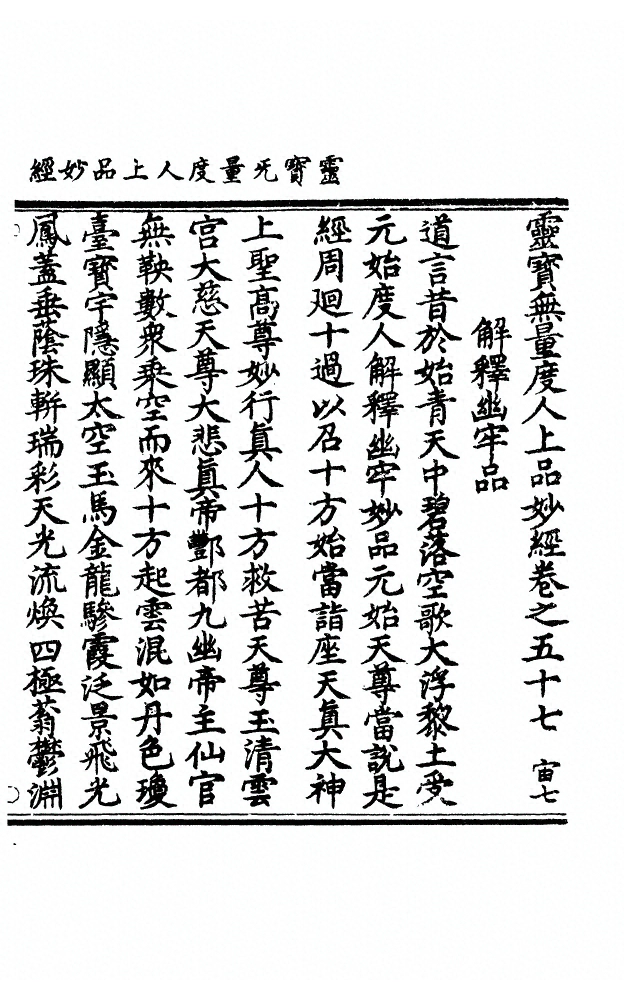 靈寳无量度人上品妙經
靈寳無量度人上品妙經卷之五十七 宙七
解釋幽牢品
道言昔於始青天中碧落空歌大浮黎土受
元始度人解釋幽牢妙品元始天尊當說是
經周廻十過以召十方始當詣座天眞大神
上聖高尊妙行眞人十方救苦天尊玉清雲
宮大慈天尊大悲眞帝酆都九幽帝主仙官
無鞅數衆乗空而來十方起雲混如丹色瓊
臺寳宇隱顯太空玉馬金龍驂霞泛景飛光
鳳蓋垂蔭珠軿瑞彩天光流煥四極蓊鬱淵